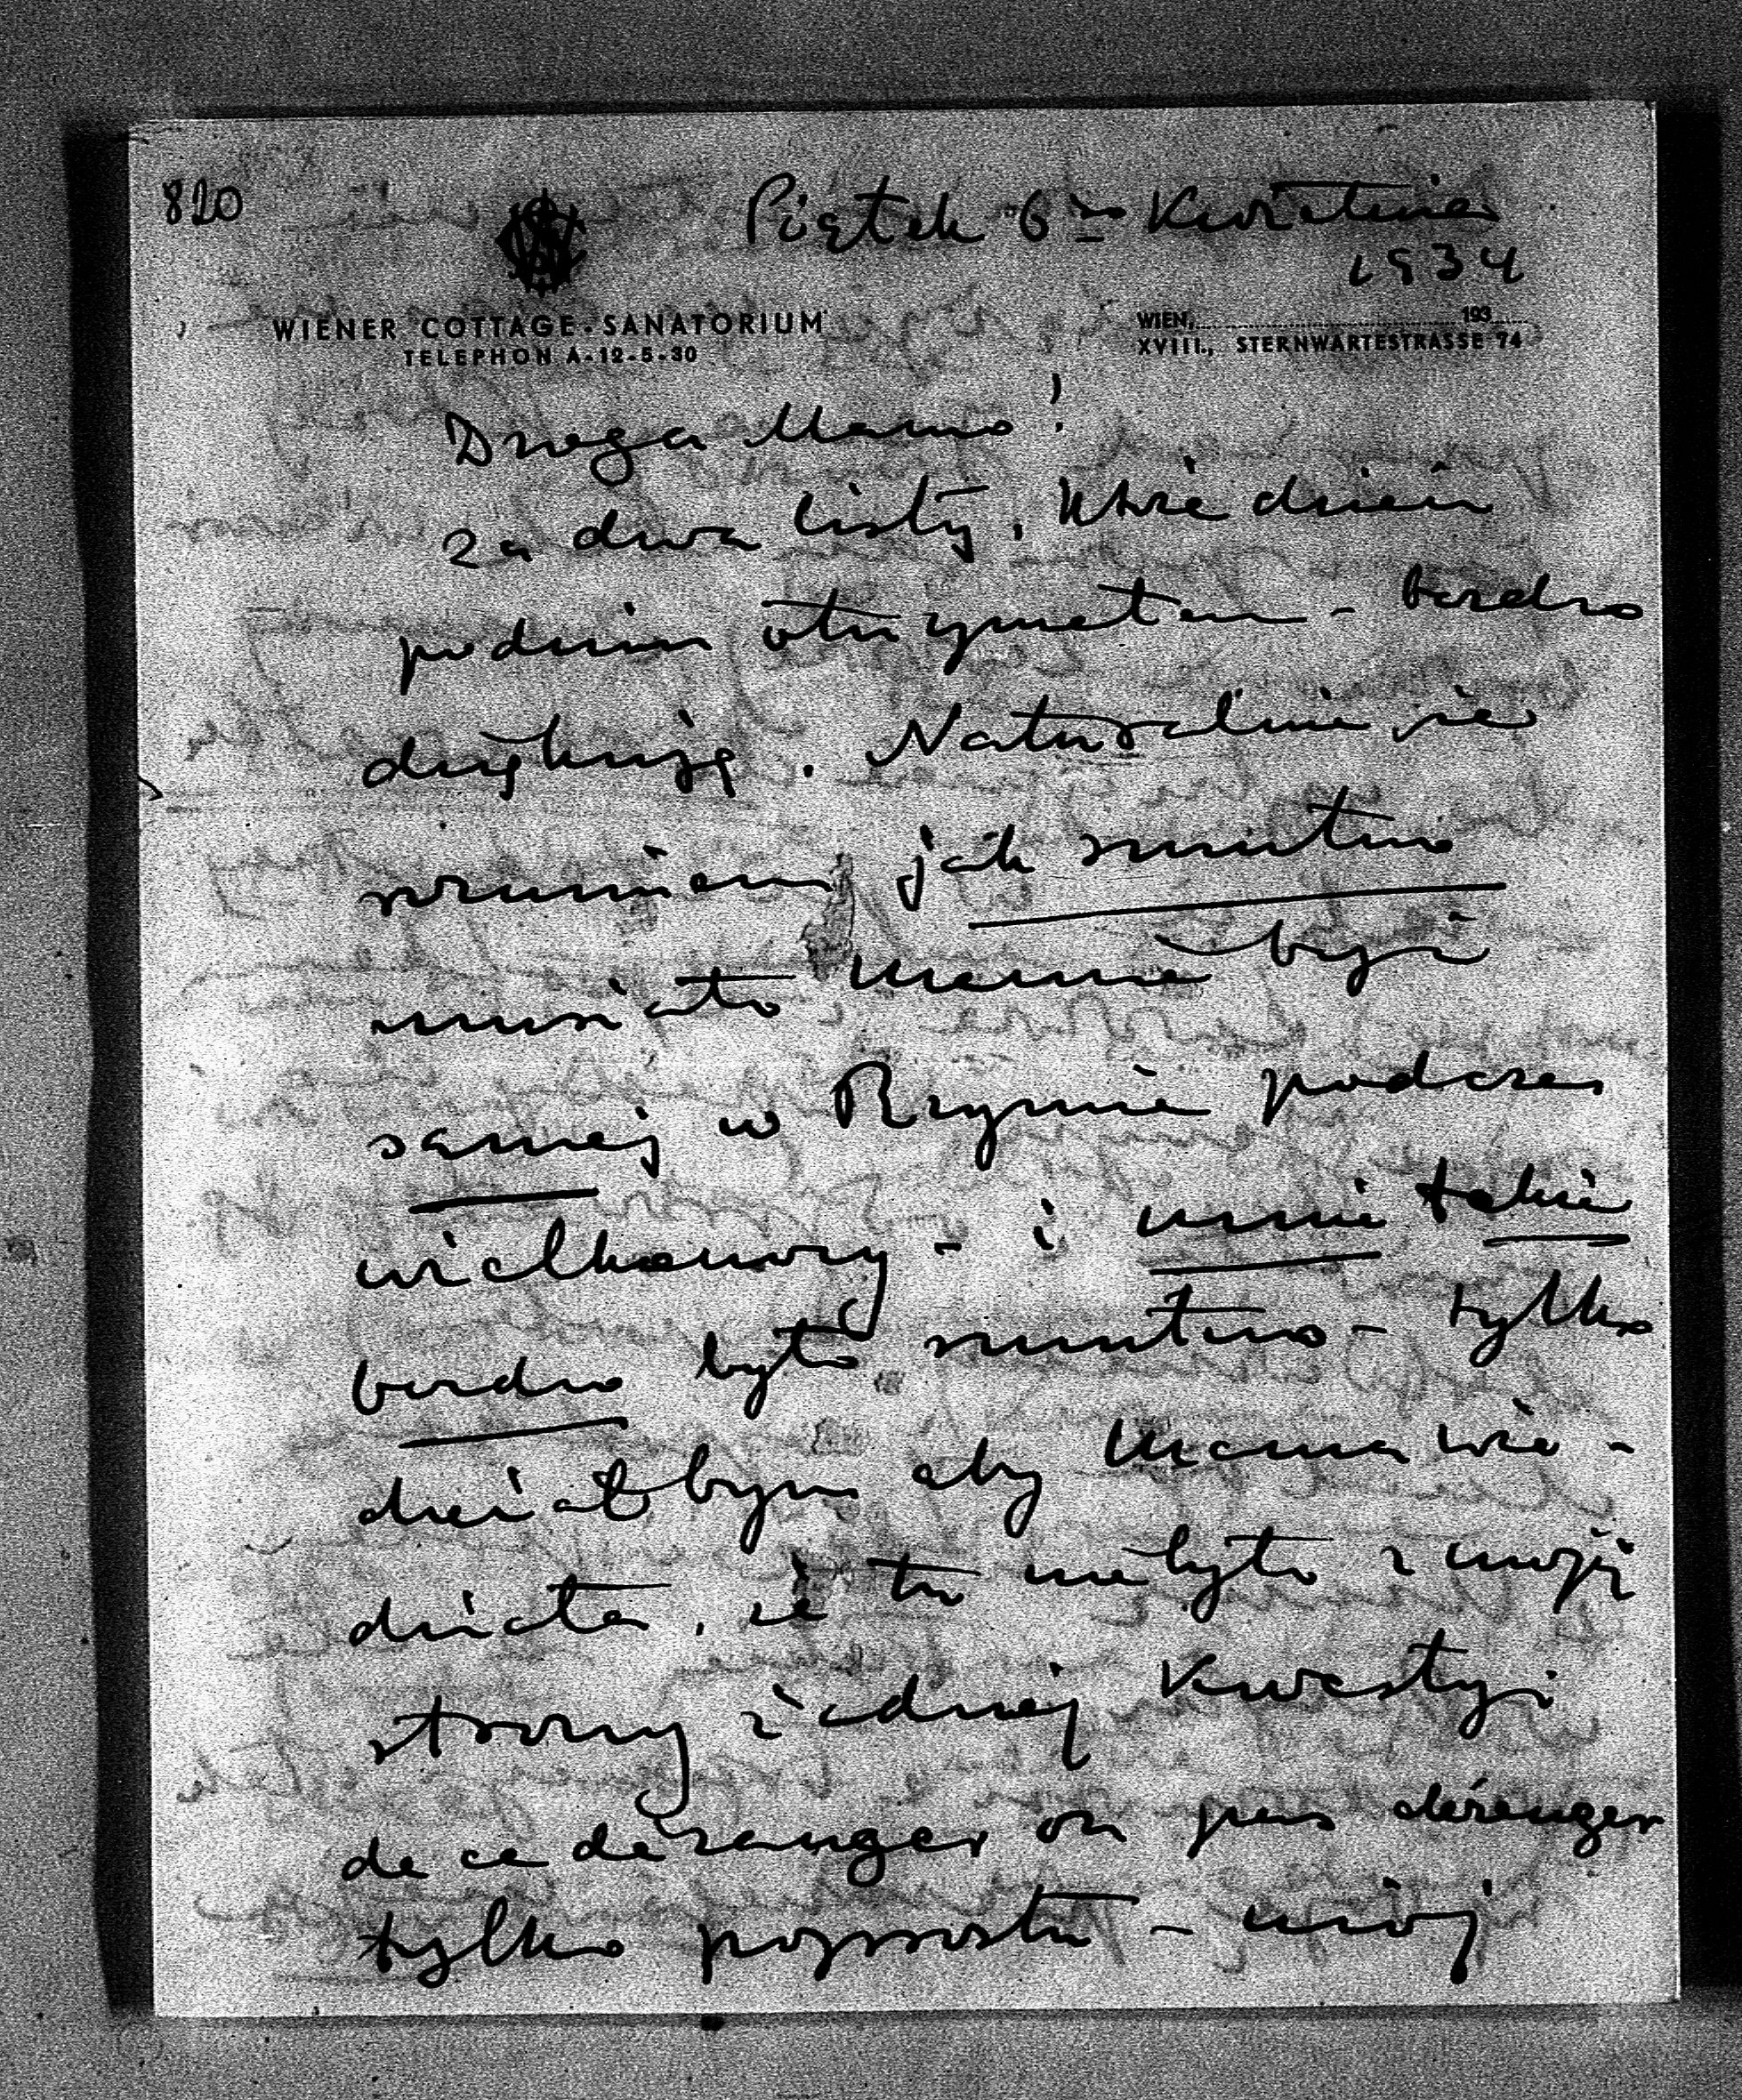 820
Piątek 6go Kwietnia
1934
WIENER COTTAGE-SANATORIUM
TELEPHON A-12-5-30
WIEN, 193
XVIII., STERNWARTESTRASSE 74
Droga Mamo!
za dwa listy, które dzień
po dniu otrzymałem - bardzo
dziękuję. Naturalnie że
rozumiem jak smutno
musiało Mamie być
samej w Rzymie podczas
wielkanocy - i mnie także
bardzo było smutno - tylko
chciałbym aby Mama wie-
działa, że to nie było z mojej
strony żadnej kwestyi
de ce déranger ou pas déranger
tylko poprostu - mój